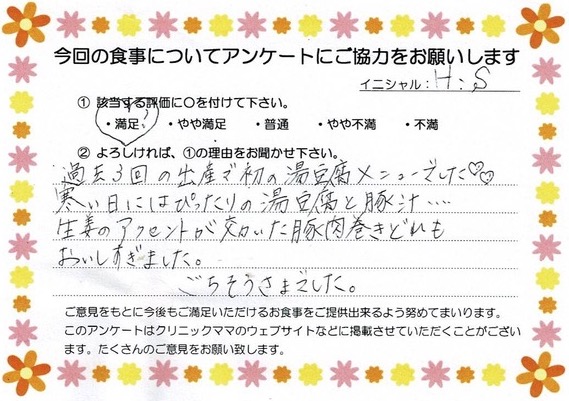 今回の食事についてアンケートにご協力をお願いします
イニシャル：H：S
① 該当する評価に○を付けて下さい。
・満足 ・やや満足 ・普通 ・やや不満 ・不満
② よろしければ、①の理由をお聞かせ下さい。
過去3回の出産で初の湯豆腐メニューでした♡♡
寒い日にはぴったりの湯豆腐と豚汁‥‥
生姜のアクセントが効いた豚肉巻きどれも
おいしすぎました。
ごちそうさまでした。
ご意見をもとに今後もご満足いただけるお食事をご提供出来るよう努めてまいります。
このアンケートはクリニックママのウェブサイトなどに掲載させていただくことがござい
ます。たくさんのご意見をお願い致します。